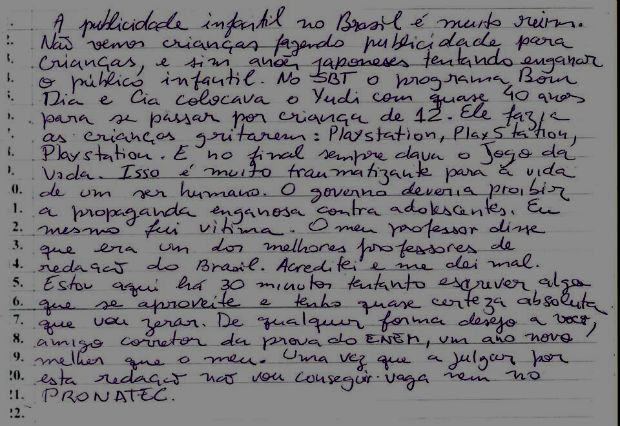 A publicidade infantil no Brasil é muito ruim.
Não vemos crianças fazendo publicidade para
crianças, e sim anões japoneses tentando enganar
o público infantil. No SBT o programa Bom
Dia e Cia colocava o Yudi com quase 40 anos
para se passar por criança de 12. Ele fazia
as crianças gritarem: Playstation, PlayStation,
Playstation. E no final sempre dava o Jogo da
Vida. Isso é muito traumatizante para a vida
0. de um ser humano. O governo deveria proibir
1. a propaganda enganosa contra adolescentes. Eu
2. mesmo fui vítima. O meu professor disse
3. que era um dos melhores professores de
4. redação do Brasil. Acreditei e me dei mal.
5. Estou aqui há 30 minutos tentanto escrever algo
6. que se aproveite e tenho quase certeza absoluta
7. que vou zerar. De qualquer forma desejo a você,
8. amigo corretor da prova do ENEM, um ano novo
9. melhor que o meu. Uma vez que a julgar por
20. esta redação não vou conseguir vaga nem no
21. PRONATEC.
22.